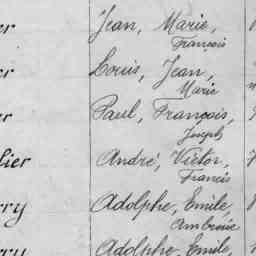 er Jean, Marie,
François
er Louis, Jean,
Marie
er Paul, François,
Joseph
lier André, Victor,
Francis
rry Adolphe, Emile,
Ambroise
rry Adolphe, Emile,